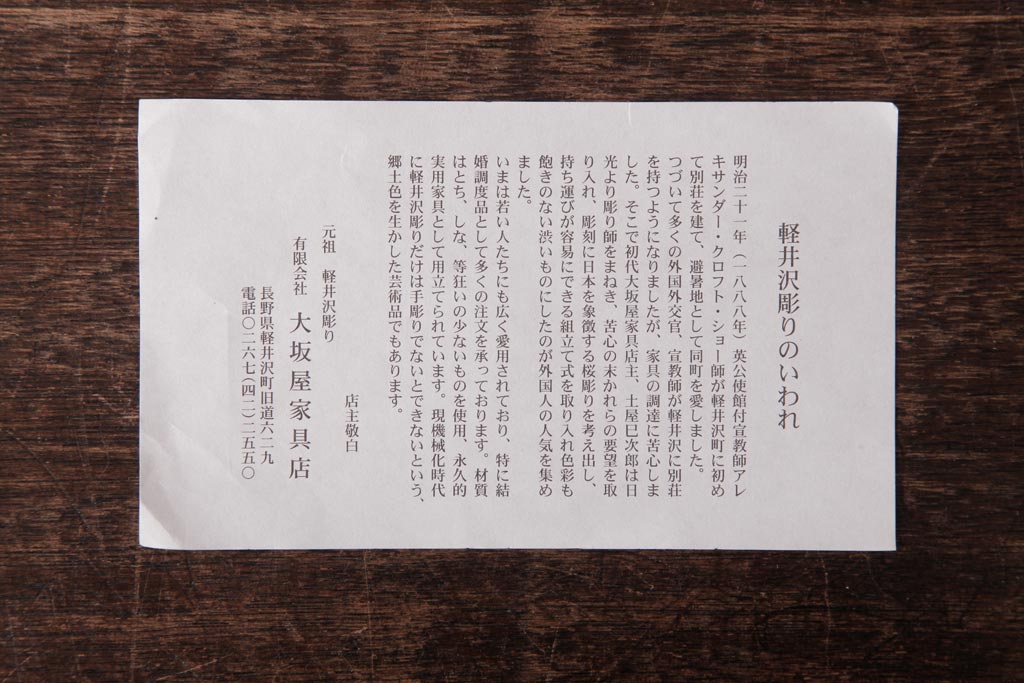 軽井沢彫りのいわれ
明治二十一年（一八八八年）英公使館付宣教師アレ
キサンダー・クロフト・ショー師が軽井沢町に初め
て別荘を建て、避暑地として同町を愛しました。
つづいて多くの外国外交官、宣教師が軽井沢に別荘
を持つようになりましたが、家具の調達に苦心しま
した。そこで初代大坂屋家具店主、土屋巳次郎は日
光より彫り師をまねき、苦心の末かれらの要望を取
り入れ、彫刻に日本を象徴する桜彫りを考え出し、
持ち運びが容易にできる組立て式を取り入れ色彩も
飽きのない渋いものにしたのが外国人の人気を集め
ました。
いまは若い人たちにも広く愛用されており、特に結
婚調度品として多くの注文を承っております。材質
はとち、しな、等狂いの少ないものを使用、永久的
実用家具として用立てられています。現機械化時代
に軽井沢彫りだけは手彫りでないとできないという、
郷土色を生かした芸術品でもあります。
店主敬白
元祖　軽井沢彫り
有限会社　大坂屋家具店
長野県軽井沢町旧道六二九
電話〇二六七（四二）二五五〇